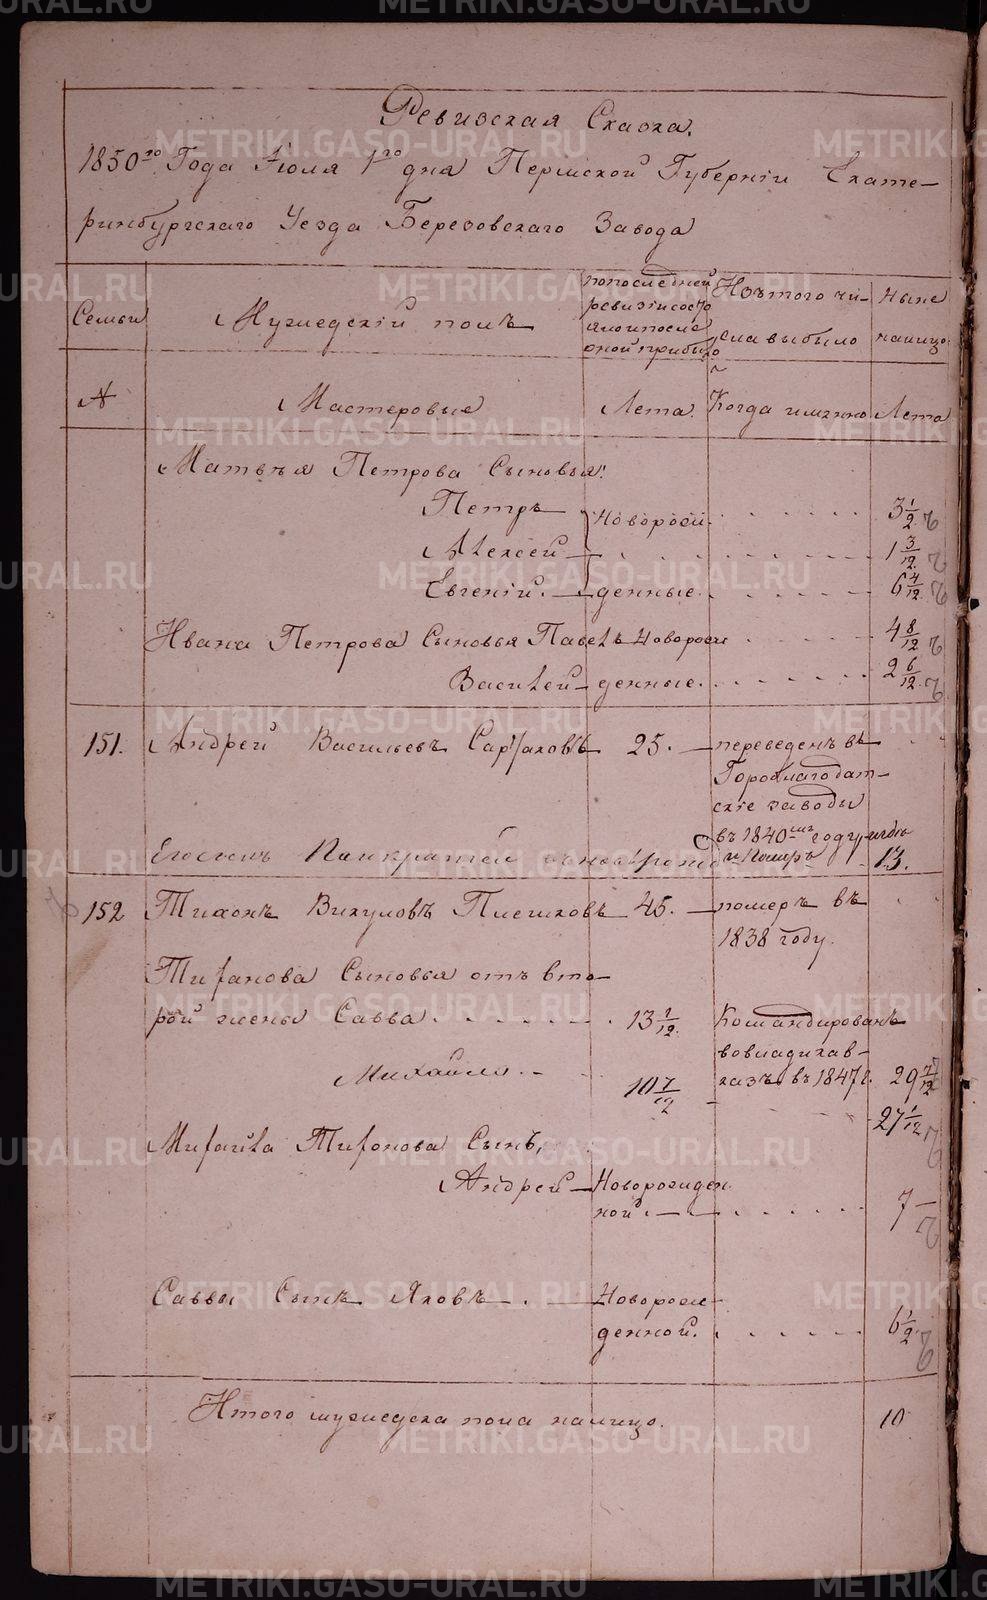 Ревизская Сказка.
1850го Года Июля 1го дня Пермской Губернiи Екате-
ринбургскаго Уезда Березовскаго Завода
Семьи
Мужедскiй полъ
попоследней
ревизiисосто
ялоипосле
оной прибыло
Изътого чи-
сла выбыло
Ныне
налицо
№
Мастеровые
Лета.
Когда имянно
Лета
Матвѣя Петрова Сыновья:
Петръ новорожд- 3 1/2
Алексей 1 3/12
Евгенiй. денные. 6 4/12
Ивана Петрова Сыновья Павелъ новорож 4 8/12
Василей денные. 2 6/12
151. Андрей Васильевъ 25. переведенъ въ
Гороблагодат-
скiе заводы
въ 1840мъ году
Егосынъ Панкратей 13.
152 Тихонъ Викуловъ Плешковъ 45. померъ въ
1838 году.
Тифанова Сыновья отъ вто-
рой жены Савва 13 1/12. Командированъ
вовладикав-
Михайло. 10 7/12 казъ въ 1847 г. 29 7/12
27 1/12
Мифаила Тифонова Сынъ,
Андрей Новорожден
ной. 7
Саввы Сынъ Яковъ Новорож-
денной. 6 1/2
Итого мужедска пола налицо. 10
METRIKI.GASO-URAL.RU